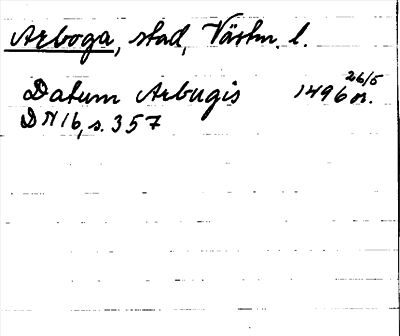 Arboga, stad, Västm. l.
Datum Arbugis 1496 26/5 or.
DN 16, s. 357